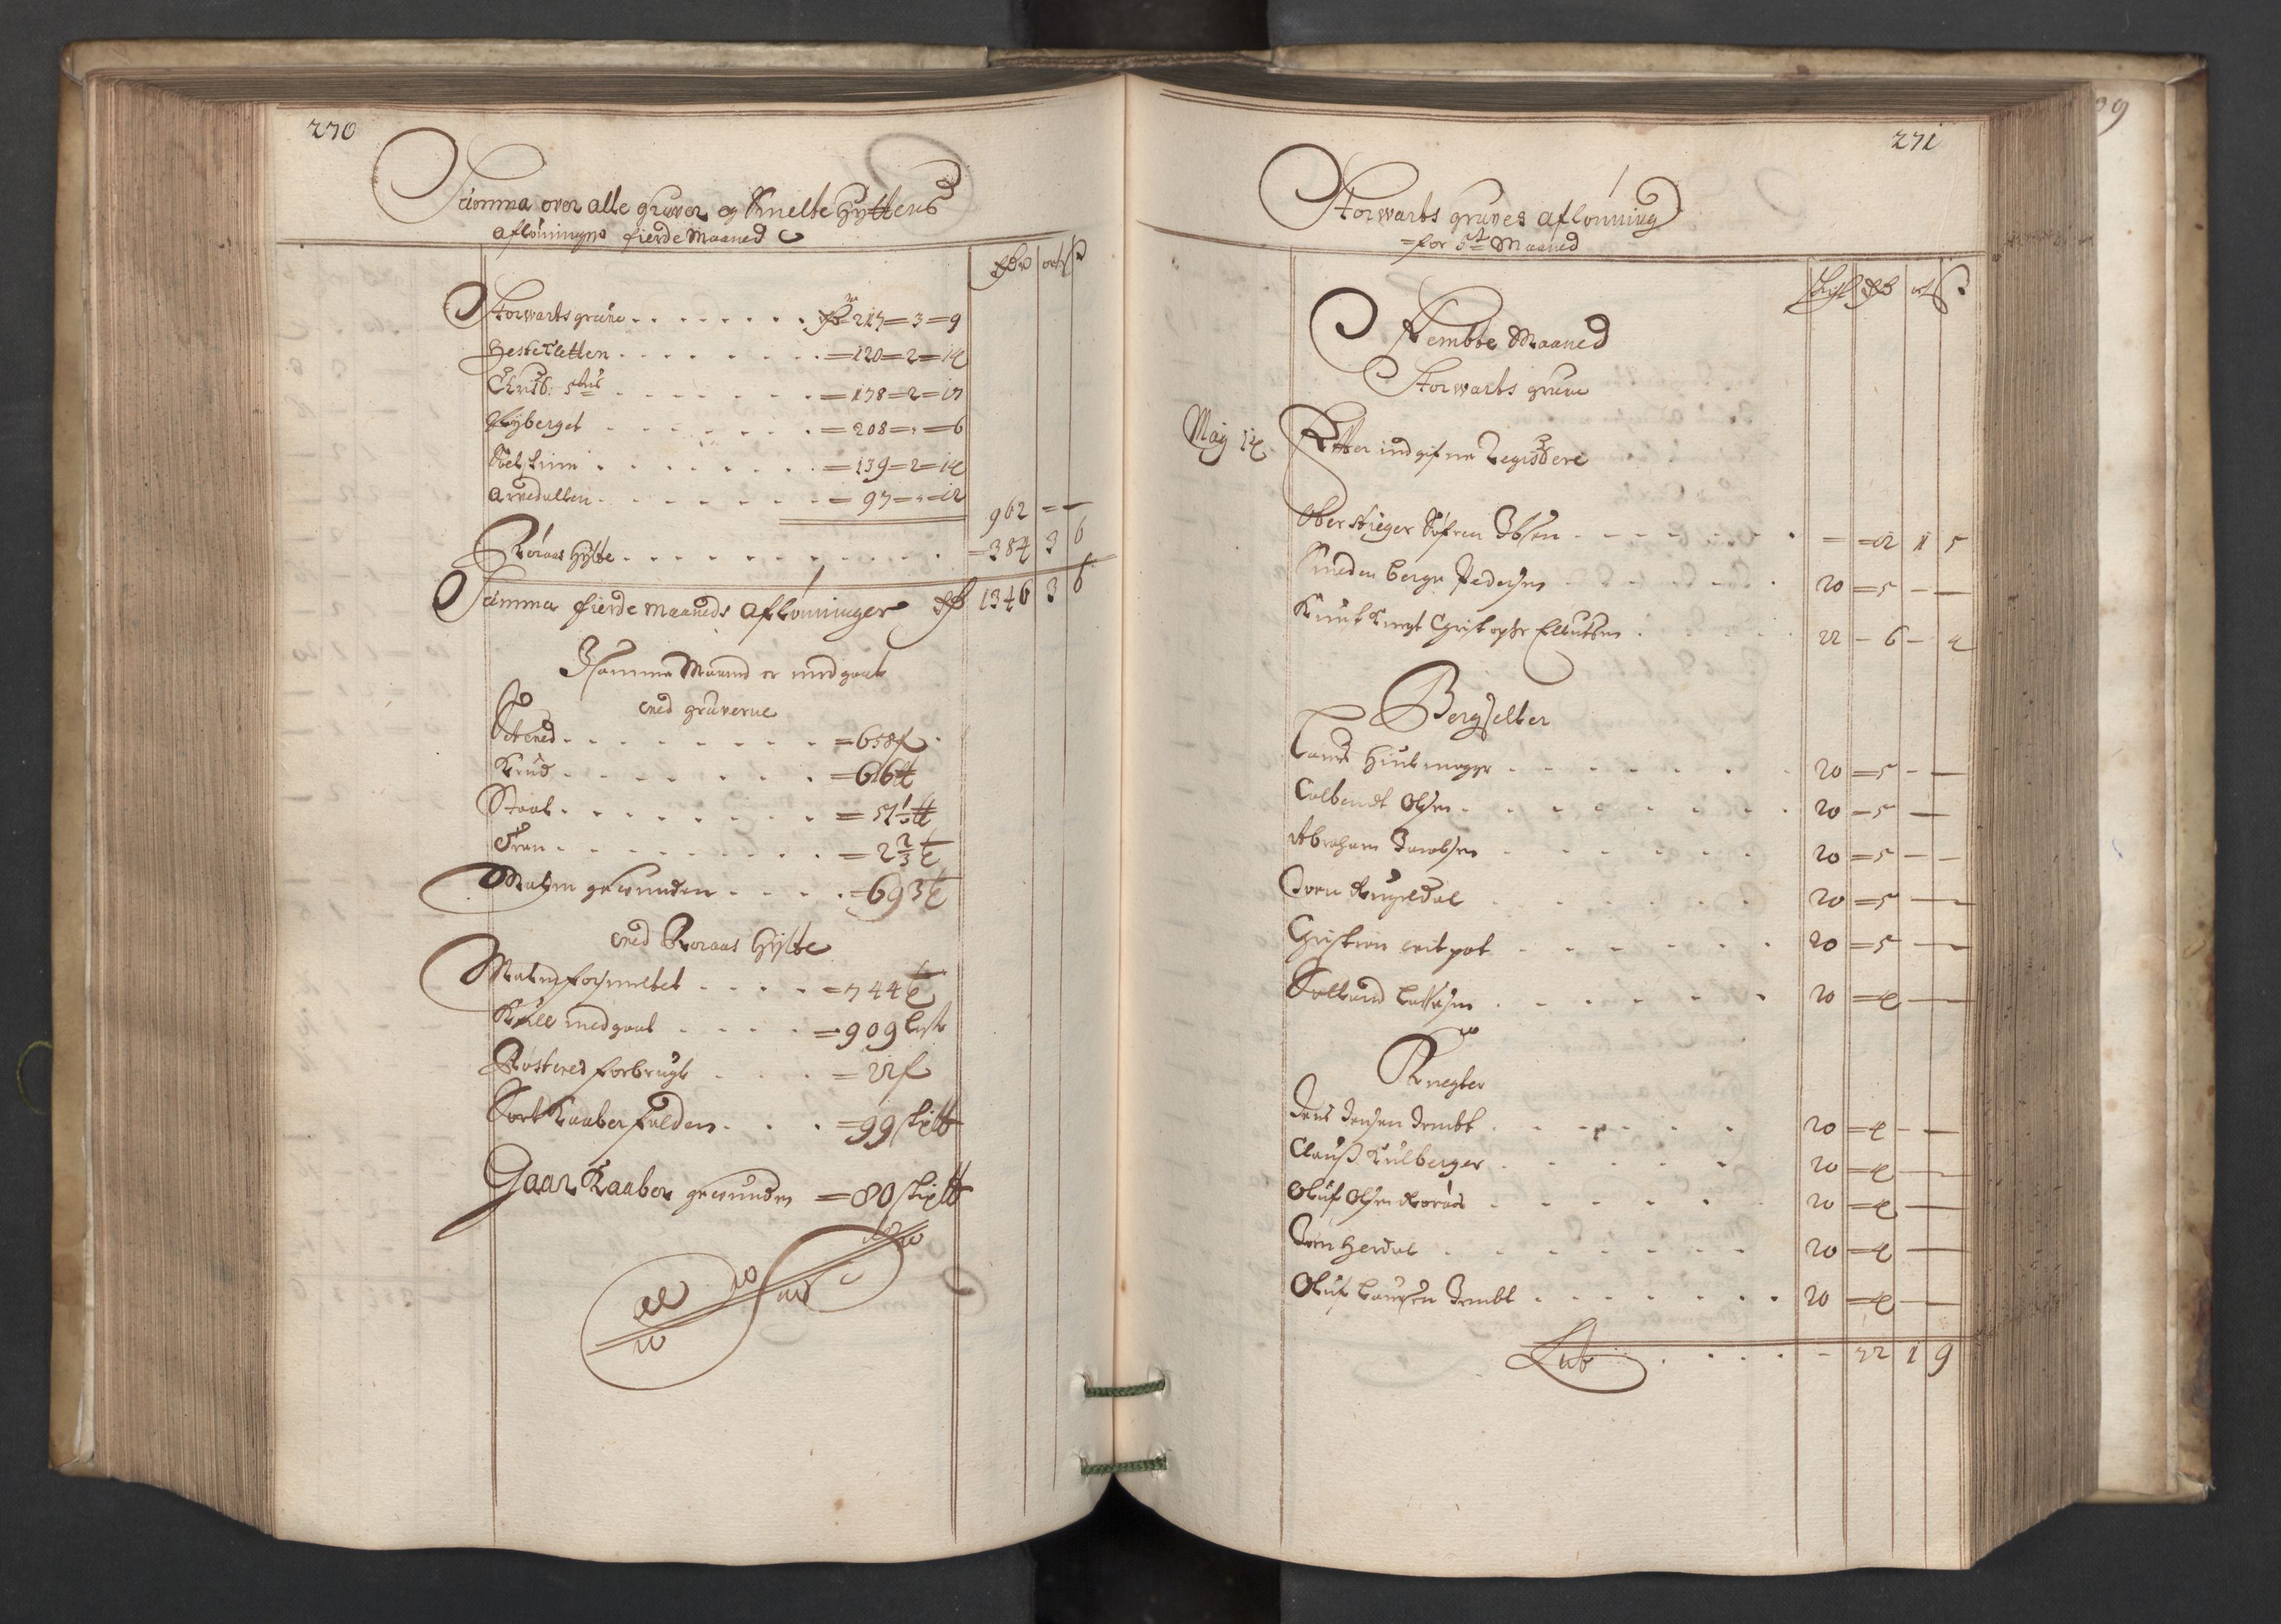 270
Summa over alle gruver og Smelte Hyttens
aflønninger fierde Maaned
Rdr ort ß
Storwarts grune . . . Rdr 217 = 3 = 9
Hestesletten . . . = 120 = 2 = 14
Christ: 5tus . . . = 178 = 2 = 17
Nyberget . . . = 208 = " = 6
Solskinn . . . = 139 = 2 = 14
Arvedallen . . . = 97 = " = 12
962 = —
Røraas Hytte . . . = 384 3 6
Summa fierde Maaneds Aflønninger Rdr 1346 3 6
I samme Maaned er medgaat
ved gruverne
Setved . . . = 658 f
Krud . . . = 66 ℔
Staal . . . = 51½ ℔
Tran . . . = 2 2/3 t
Malm gewunden . . . = 693 t
ved Røraas Hytte
Malm forsmeltet . . . = 744 t
Kull medgaat . . . = 909 lest
Røstved forbrugt . . . = 22 f
Sort Kaaber falden . . . = 99 skip℔
Gaar Kaaber gewunden = 80 skip℔
271
Storwarts gruves aflønning
for 5te Maaned
Skift Rdr ort ß
Fembte Maaned
Storwarts grune
May 14 Efter indgifne Registere
Oberstieger Søfren Ibsen . . . — = 12 1 5
Smeden Berge Pedersen . . . 20 = 5 — —
Kunst Knegt Christopher Ellutsen . 22 — 6 — 4
Bergselter
Laurs Hiulmager . . . 20 = 5 — —
Colbendt Olsen . . . 20 = 5 —
Abraham Jacobsen . . . 20 = 5 — —
Joen Rugeldal . . . 20 = 5 —
Christian witpot . . . 20 = 5 —
Solland Lassesen . . . 20 = 4 —
Knegter
Jens Jensen Jembt . . . 20 = 4 — —
Clauß Kulberger . . . 20 = 4 —
Oluf Olsen Røraas . . . 20 = 4 —
Joen Herdal . . . 20 = 4 —
Oluf Laursen Jembt . . . 20 = 4 —
Lat . . . — 72 1 9